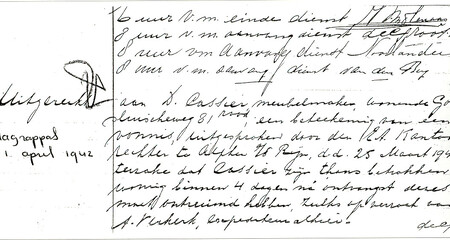 6 uur v.m. einde dienst
8 uur v.m. aanvang dienst de Groot
8 uur vm Aanvang dienst Hollander
8 uur v.m. aanvang dienst van den Berg
Uitgereikt
aan D. Cassier, meubelmaker, wonende Go
sluischeweg 81 rood, een beteekening van een
vonnis, uitgesproken door den E.A. Kanton
1 april 1942
rechter te Alphen a/d Rijn, d.d. 25 Maart 194
terzake dat Cassier zijn thans betrokken
woning binnen 4 dagen na ontvangst deres
moet ontruimd hebben, zulks op verzoek van
A. Verkerk, expediteur alhier.
de G